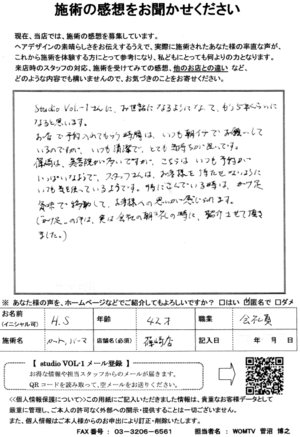 施術の感想をお聞かせください
現在、当店では、施術の感想を募集しています。
ヘアデザインの素晴らしさをお伝えするうえで、実際に施術されたあなた様の率直な声が、
これから施術を体験する方にとって参考になり、私どもにとっても何よりの力となります。
来店時のスタッフの対応、施術を受けてみての感想、他のお店との違い など、
どのような内容でも構いませんので、お気づきのことをお寄せください。
Studio VOL-1さんに、お世話になるようになって、もう5年くらいに
なると思います。
お店で予約入れてもらう時間は、いつも朝イチでお願いして
いるのですが、いつも清潔で、とても気持ちが良いです。
篠崎は、美容院が多いですが、こちらは いつも予約が
いっぱいなようで、スタッフさんは、お客様を待たせないように
いつも気を使っているようです。特にこんでいる時は、かけ足
気味で移動して、お客様への思いが感じられます。
(かけ足の件は、実は会社の朝礼の時に、紹介させて頂き
ました。)
※ あなた様の声を、ホームページなどでご紹介してもよろしいですか? □はい ☑匿名で □ダメ
お名前
(イニシャル可) H.S 年齢 42才 職業 会社員
施術名 カット、パーマ 店舗名(必須) 篠崎店 記入日 年 月 日
【 studio VOL-1 メール登録 】
お得な情報や担当スタッフからのメールが届きます。
QRコードを読み取って、空メールをお送りください。
<<個人情報保護について>>この用紙にご記入いただきました情報は、貴重なお客様データとして
厳重に管理し、ご本人の許可なく外部への開示・提供することは一切ございません。
また、個人情報はご本人様からのお申出により訂正・削除いたします。
FAX番号: 03-3206-6561 担当者名: WOMTV 菅沼 博之